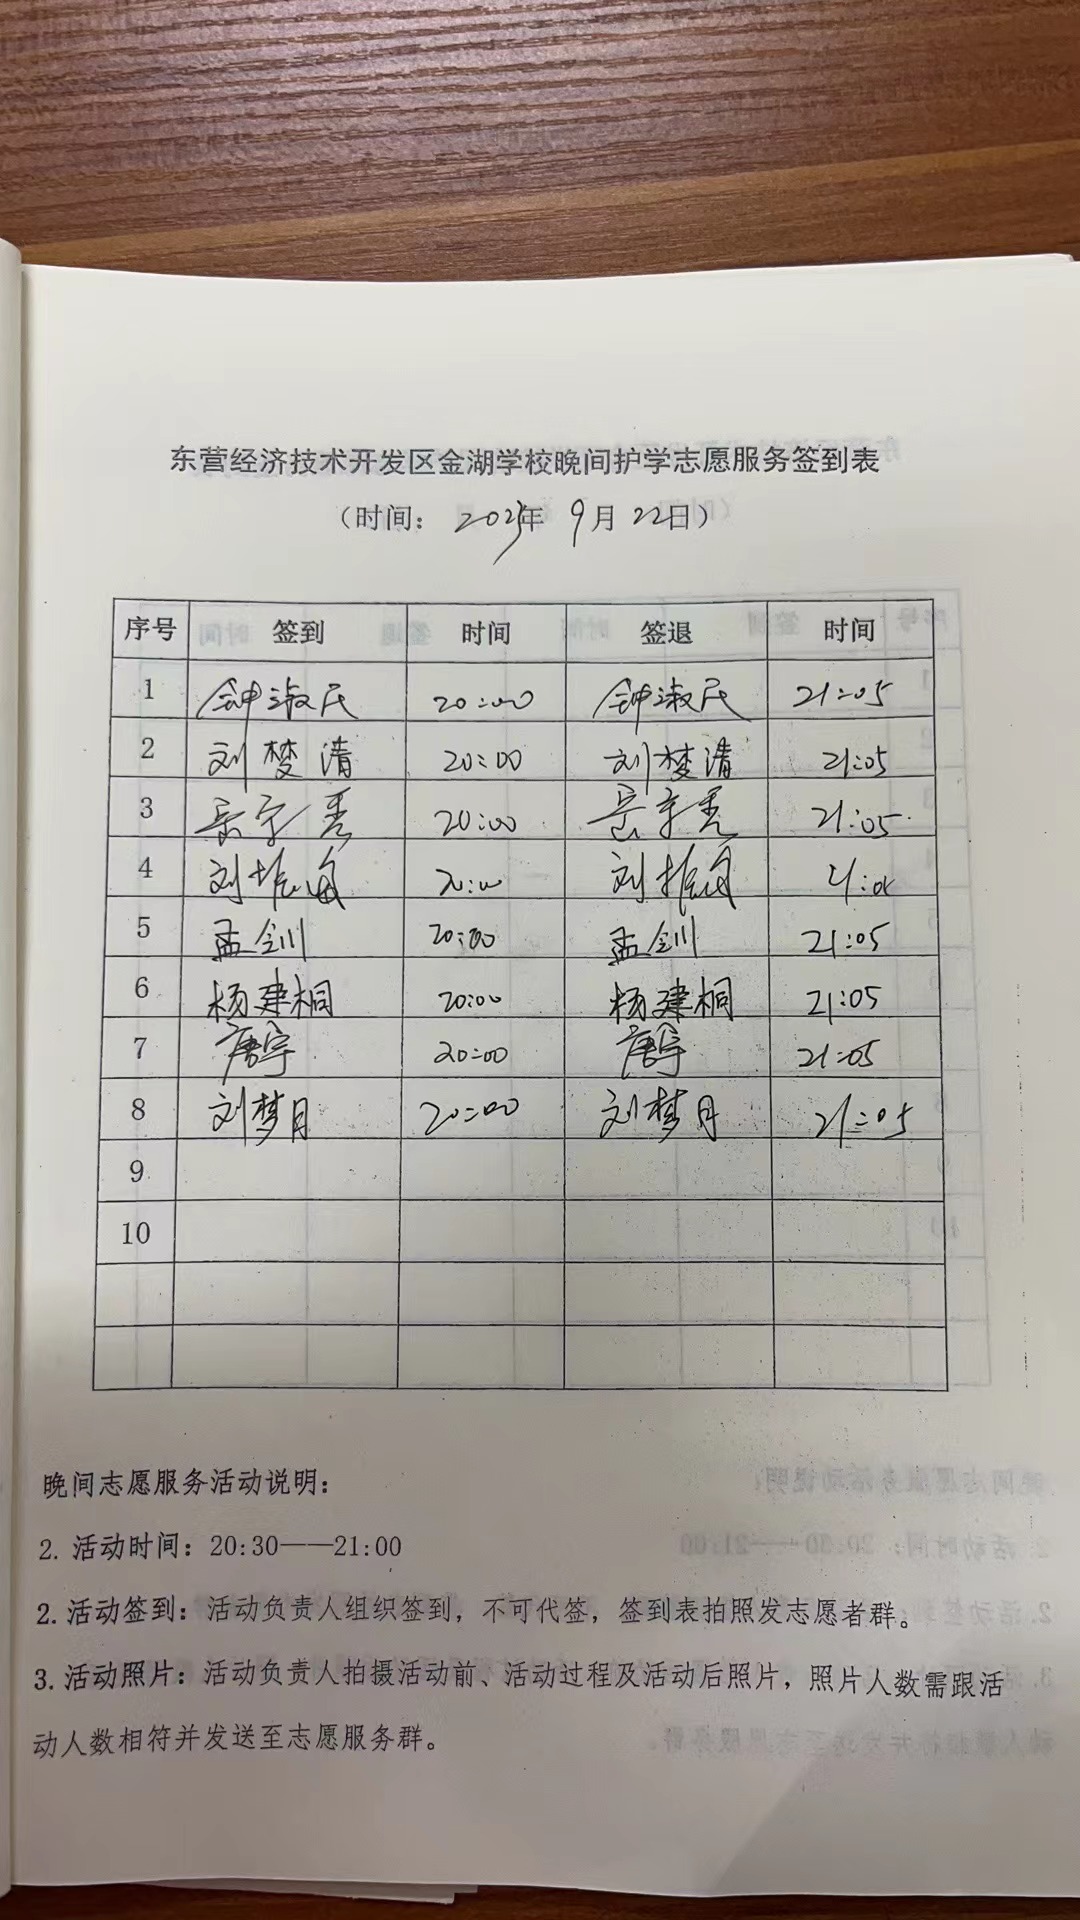 东营经济技术开发区金湖学校晚间护学志愿服务签到表
（时间：2025年 9月 22日）
序号 签到 时间 签退 时间
1 钟淑民 20:00 钟淑民 21:05
2 刘梦清 20:00 刘梦清 21:05
3 20:00 21:05
4 刘 20:00 刘
5 孟剑川 20:00 孟剑川 21:05
6 杨建桐 20:00 杨建桐 21:05
7 唐宇 20:00 唐宇 21:05
8 刘梦月 20:00 刘梦月 21:05
9
10
晚间志愿服务活动说明：
2. 活动时间：20:30——21:00
2. 活动签到：活动负责人组织签到，不可代签，签到表拍照发志愿者群。
3. 活动照片：活动负责人拍摄活动前、活动过程及活动后照片，照片人数需跟活
动人数相符并发送至志愿服务群。